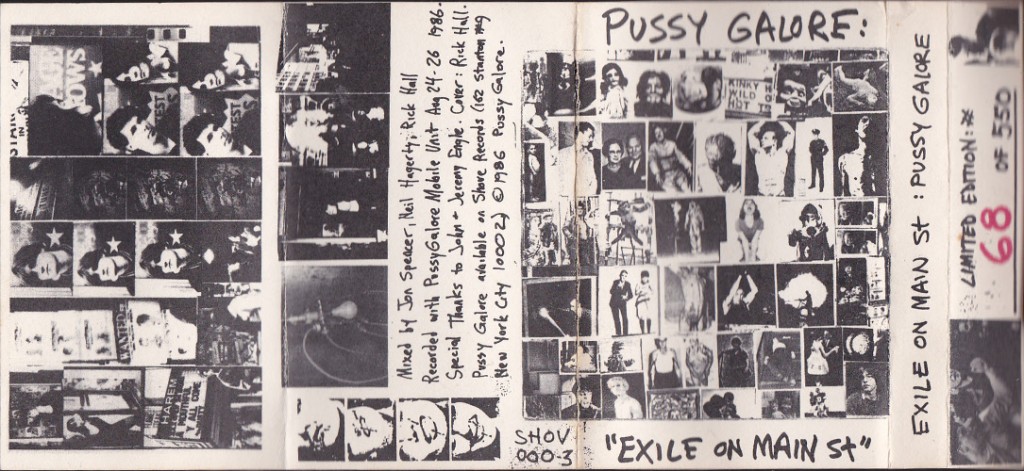 PUSSY GALORE:
"EXILE ON MAIN St"
SHOV
000-3
EXILE ON MAIN St : PUSSY GALORE
LIMITED EDITION: #
68 OF 550
Mixed by Jon Spencer, Neil Hagerty, Rick Hall
Recorded with PussyGalore Mobile Unit Aug 24-26 1986.
Special Thanks to John + Jeremy Engle. Cover: Rick Hall.
Pussy Galore available on Shove Records (162 stanton #9
New York City 10002) © 1986 Pussy Galore.
HAREM